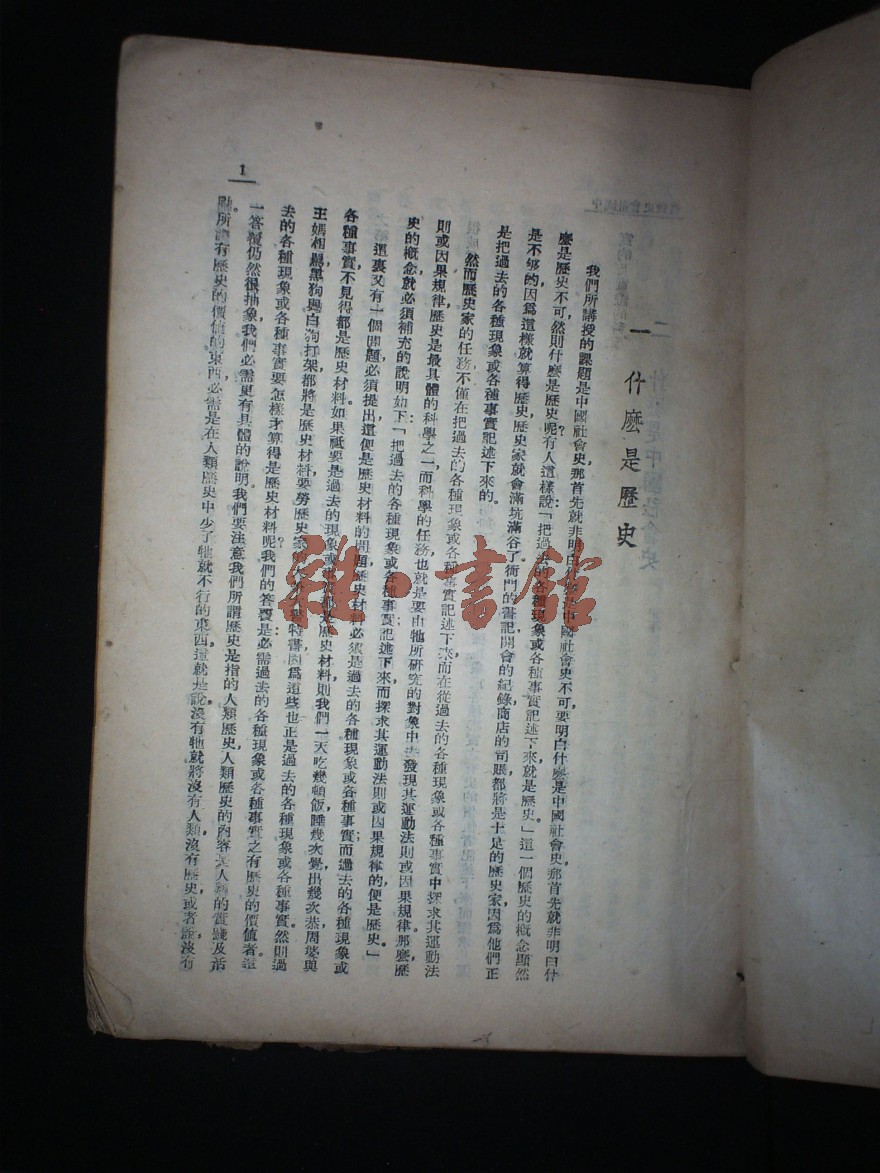 一 什麼是歷史
我們所講授的課題是中國社會史那首先就非明白什麼是中國社會史不可要明白什麼是中國社會史那首先就非明白什
麼是歷史不可，然則什麼是歷史呢？有人這樣說：「把過去的各種現象或各種事實記述下來，就是歷史。」這一個歷史的概念顯然
是不够的因爲這樣就算得歷史歷史家就會滿坑滿谷了衙門的書記開會的紀錄商店的司賬都將是十足的歷史家因爲他們正
是把過去的各種現象或各種事實記述下來的。
然而歷史家的任務不僅在把過去的各種現象或各種事實記述下來而在從過去的各種現象或各種事實中探求其運動法
則或因果規律歷史是最具體的科學之一而科學的任務也就是要由牠所研究的對象中去發現其運動法則或因果規律那麼歷
史的概念就必須補充的說明如下：「把過去的各種現象或各種事實記述下來而探求其運動法則或因果規律的便是歷史。」
這裏又有一個問題必須提出這便是歷史材料的問題歷史材料必須是過去的各種現象或各種事實而過去的各種現象或
各種事實，不見得都是歷史材料如果祗要是過去的現象或事實都是歷史材料則我們一天吃幾頓飯，睡幾次覺出幾次恭周婆與
王媽相駡黑狗與白狗打架都將是歷史材料，要勞歷史家的大書特書因爲這些也正是過去的各種現象或各種事實。然則過
去的各種現象或各種事實要怎樣才算得是歷史材料呢？我們的答覆是：必需過去的各種現象或各種事實之有歷史的價值者這
一答覆仍然很抽象我們必需更有具體的說明我們要注意我們所謂歷史是指的人類歷史，人類歷史的內容是人類的實踐及活
動。所謂有歷史的價值的東西必需是在人類歷史中少了牠就不行的東西這就是說，沒有牠就將沒有人類沒有歷史或者說沒有
1
雜·書館